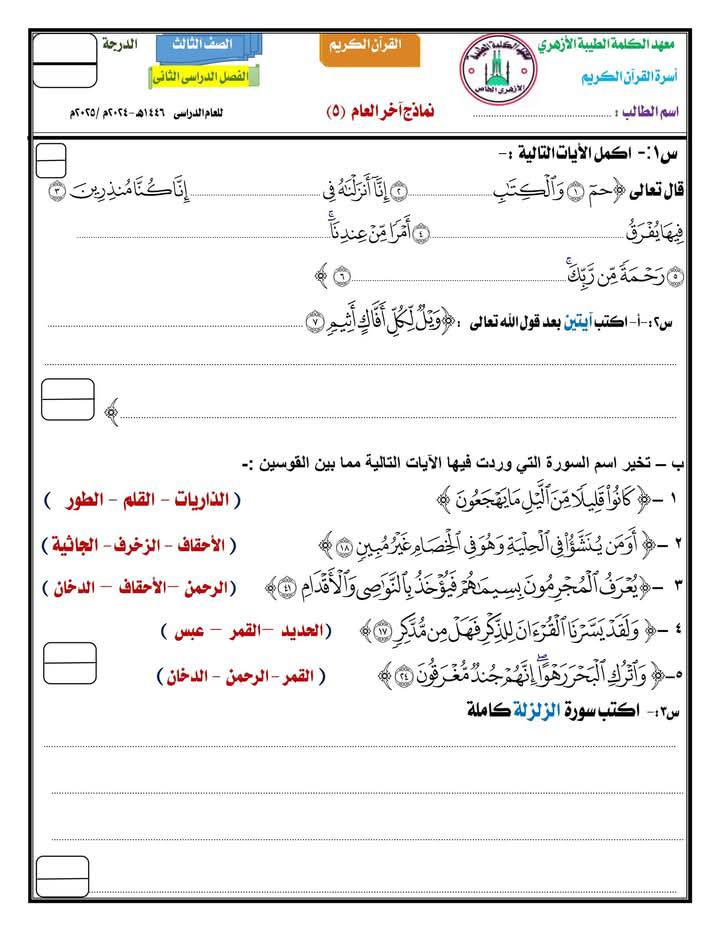 معهد الكلمة الطيبة الأزهري
أسرة القرآن الكريم
اسم الطالب : ........................
معهد الكلمة الطيبة
الأزهرى الخاص
القرآن الكريم
نماذج آخر العام (٥)
الصف الثالث
الفصل الدراسى الثانى
للعام الدراسى ١٤٤٦هـ -٢٠٢٤م /٢٠٢٥م
الدرجة
س١:- اكمل الآيات التالية :-
قال تعالى ﴿حمٓ ١ وَٱلۡكِتَٰبِ ........................ ٢ إِنَّآ أَنزَلۡنَٰهُ فِى ........................ إِنَّا كُنَّا مُنذِرِينَ ٣
فِيهَا يُفۡرَقُ ........................ ٤ أَمۡرٗا مِّنۡ عِندِنَآۚ ........................
٥ رَحۡمَةٗ مِّن رَّبِّكَۚ ........................ ٦ ﴾
س٢:-أ- اكتب آيتين بعد قول الله تعالى :﴿وَيۡلٞ لِّكُلِّ أَفَّاكٍ أَثِيمٖ ٧ ........................
........................
........................ ﴾
ب – تخير اسم السورة التي وردت فيها الآيات التالية مما بين القوسين :-
١ -﴿ كَانُواْ قَلِيلٗا مِّنَ ٱلَّيۡلِ مَا يَهۡجَعُونَ ﴾ ( الذاريات - القلم - الطور )
٢ -﴿ أَوَمَن يُنَشَّؤُاْ فِى ٱلۡحِلۡيَةِ وَهُوَ فِى ٱلۡخِصَامِ غَيۡرُ مُبِينٖ ١٨ ﴾ ( الأحقاف - الزخرف- الجاثية )
٣ -﴿ يُعۡرَفُ ٱلۡمُجۡرِمُونَ بِسِيمَٰهُمۡ فَيُؤۡخَذُ بِٱلنَّوَٰصِى وَٱلۡأَقۡدَامِ ٤١ ﴾ ( الرحمن –الأحقاف – الدخان )
٤ -﴿ وَلَقَدۡ يَسَّرۡنَا ٱلۡقُرۡءَانَ لِلذِّكۡرِ فَهَلۡ مِن مُّدَّكِرٖ ١٧ ﴾ (الحديد –القمر – عبس )
٥-﴿ وَٱتۡرُكِ ٱلۡبَحۡرَ رَهۡوًاۖ إِنَّهُمۡ جُندٞ مُّغۡرَقُونَ ٢٤ ﴾ ( القمر - الرحمن - الدخان )
س٣:- اكتب سورة الزلزلة كاملة
........................
........................
........................
........................